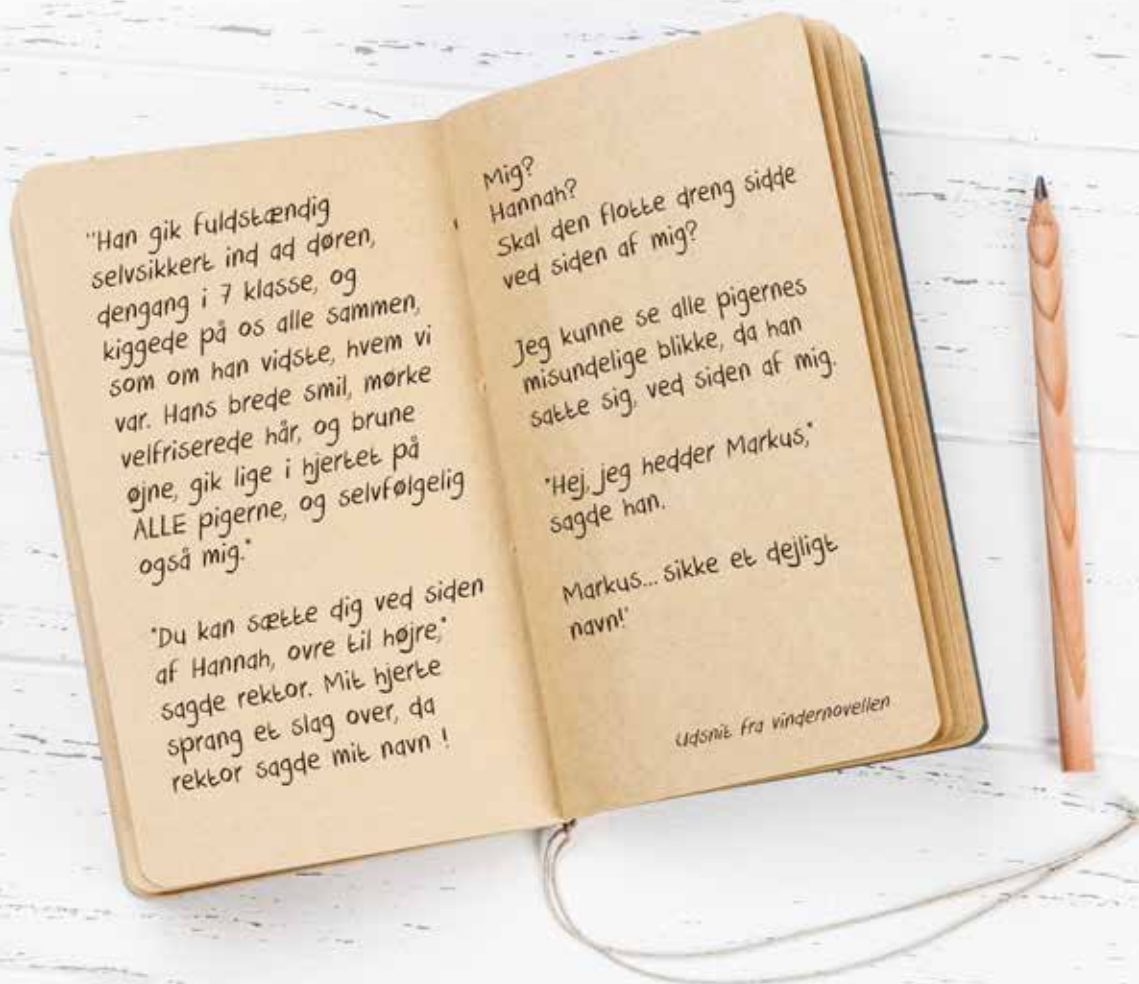 "Han gik fuldstændig
selvsikkert ind ad døren,
dengang i 7 klasse, og
kiggede på os alle sammen,
som om han vidste, hvem vi
var. Hans brede smil, mørke
velfriserede hår, og brune
øjne, gik lige i hjertet på
ALLE pigerne, og selvfølgelig
også mig."
"Du kan sætte dig ved siden
af Hannah, ovre til højre,"
sagde rektor. Mit hjerte
sprang et slag over, da
rektor sagde mit navn !
Mig?
Hannah?
Skal den flotte dreng sidde
ved siden af mig?
Jeg kunne se alle pigernes
misundelige blikke, da han
satte sig, ved siden af mig.
"Hej, jeg hedder Markus,"
sagde han.
Markus... sikke et dejligt
navn!"
Udsnit fra vindernovellen